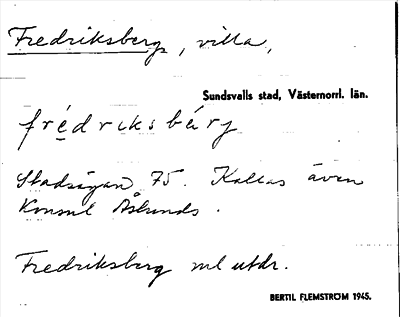 Fredriksberg, villa,
Sundsvalls stad, Västernorrl. län.
fré̱driksbérj
Stadsägan 75. Kallas även
Konsul Åslunds.
Fredriksberg ml utdr.
BERTIL FLEMSTRÖM 1945.